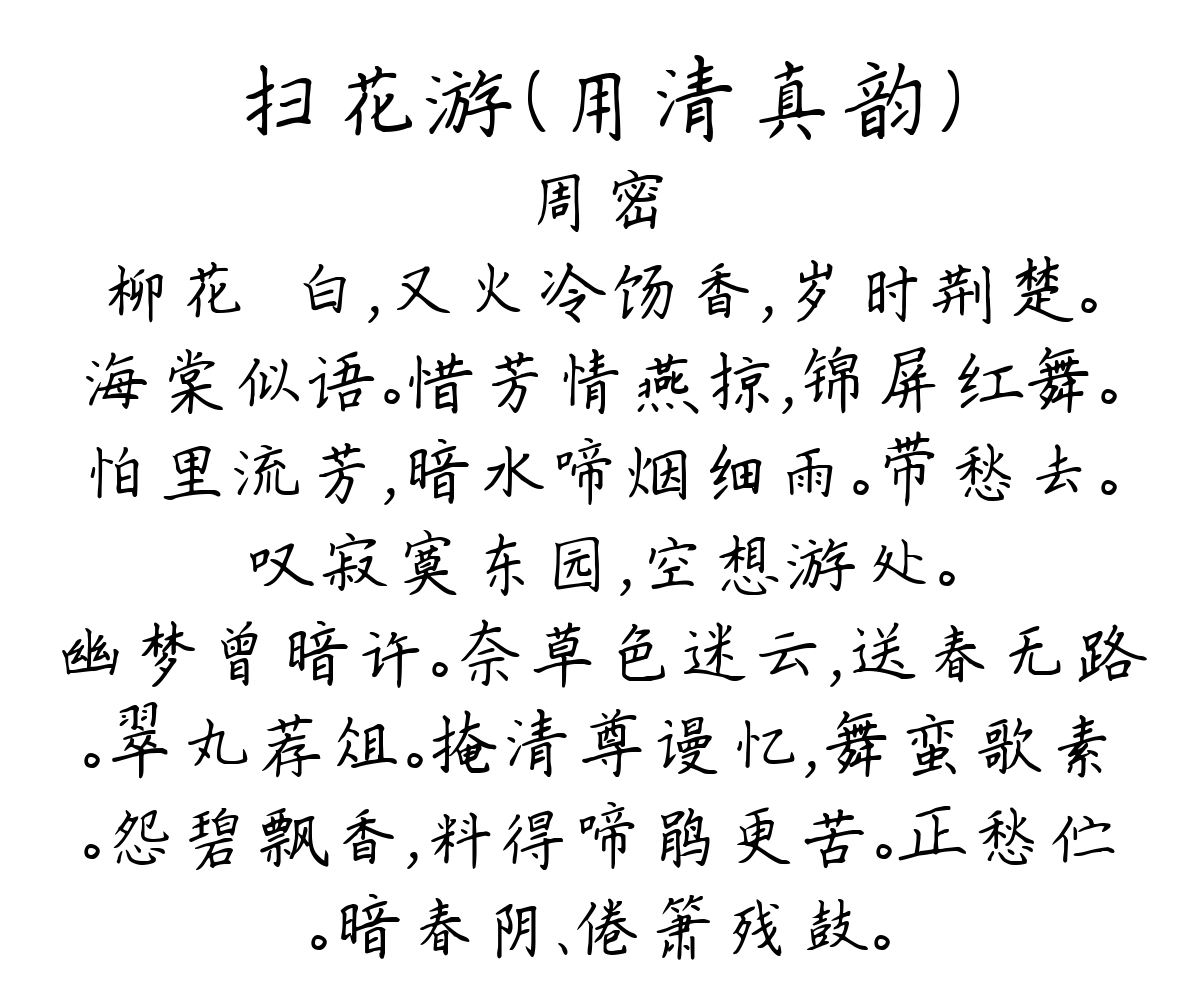 扫花游(用清真韵)
周密
柳花 白,又火冷饧香,岁时荆楚。
海棠似语。惜芳情燕掠,锦屏红舞。
怕里流芳,暗水啼烟细雨。带愁去。
叹寂寞东园,空想游处。
幽梦曾暗许。奈草色迷云,送春无路
。翠丸荐俎。掩清尊谩忆,舞蛮歌素
。怨碧飘香,料得啼鹃更苦。正愁伫
。暗春阴、倦箫残鼓。